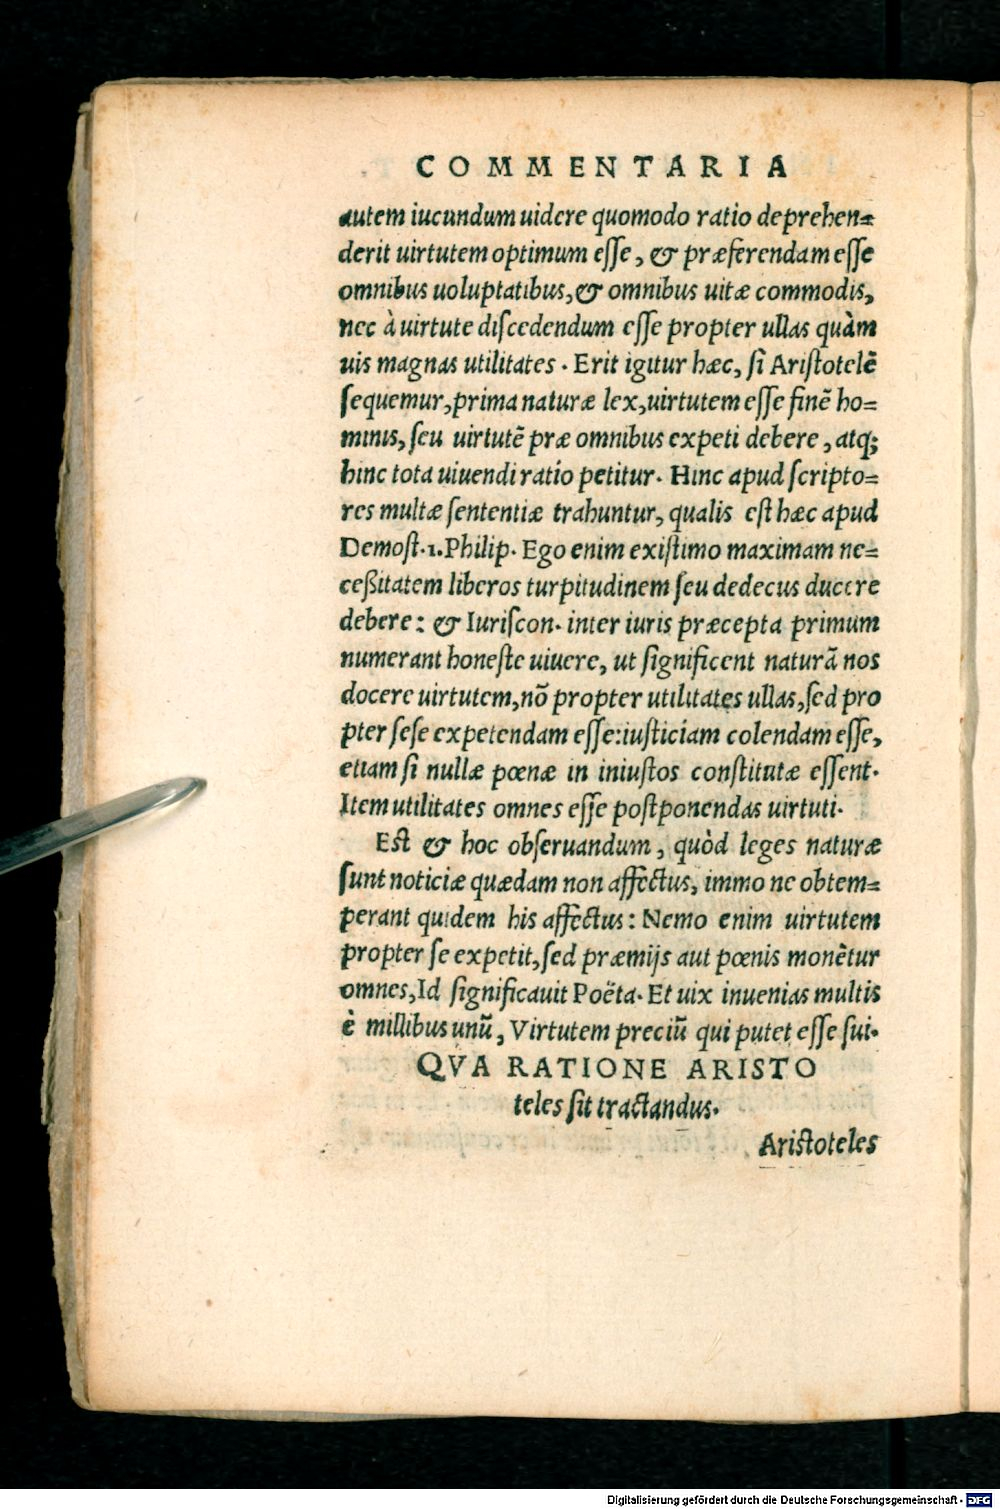 COMMENTARIA
autem iucundum uidere quomodo ratio deprehen=
derit uirtutem optimum esse, & præferendam esse
omnibus uoluptatibus, & omnibus uitæ commodis,
nec à uirtute discedendum esse propter ullas quàm
uis magnas utilitates. Erit igitur hæc, si Aristotelē
sequemur, prima naturæ lex, uirtutem esse finē ho=
minis, seu uirtutē præ omnibus expeti debere, atq;
hinc tota uiuendi ratio petitur. Hinc apud scripto=
res multæ sententiæ trahuntur, qualis est hæc apud
Demost. 1. Philip. Ego enim existimo maximam ne=
ceßitatem liberos turpitudinem seu dedecus ducere
debere: & Iuriscon. inter iuris præcepta primum
numerant honeste uiuere, ut significent naturā nos
docere uirtutem, nō propter utilitates ullas, sed pro
pter sese expetendam esse: iusticiam colendam esse,
etiam si nullæ pœnæ in iniustos constitutæ essent.
Item utilitates omnes esse postponendas uirtuti.
Est & hoc obseruandum, quòd leges naturæ
sunt noticiæ quædam non affectus, immo ne obtem=
perant quidem his affectus: Nemo enim uirtutem
propter se expetit, sed præmijs aut pœnis monētur
omnes, Id significauit Poëta. Et uix inuenias multis
è millibus unū, Virtutem preciū qui putet esse sui.
QVA RATIONE ARISTO
teles sit tractandus.
Aristoteles
Digitalisierung gefördert durch die Deutsche Forschungsgemeinschaft - DFG